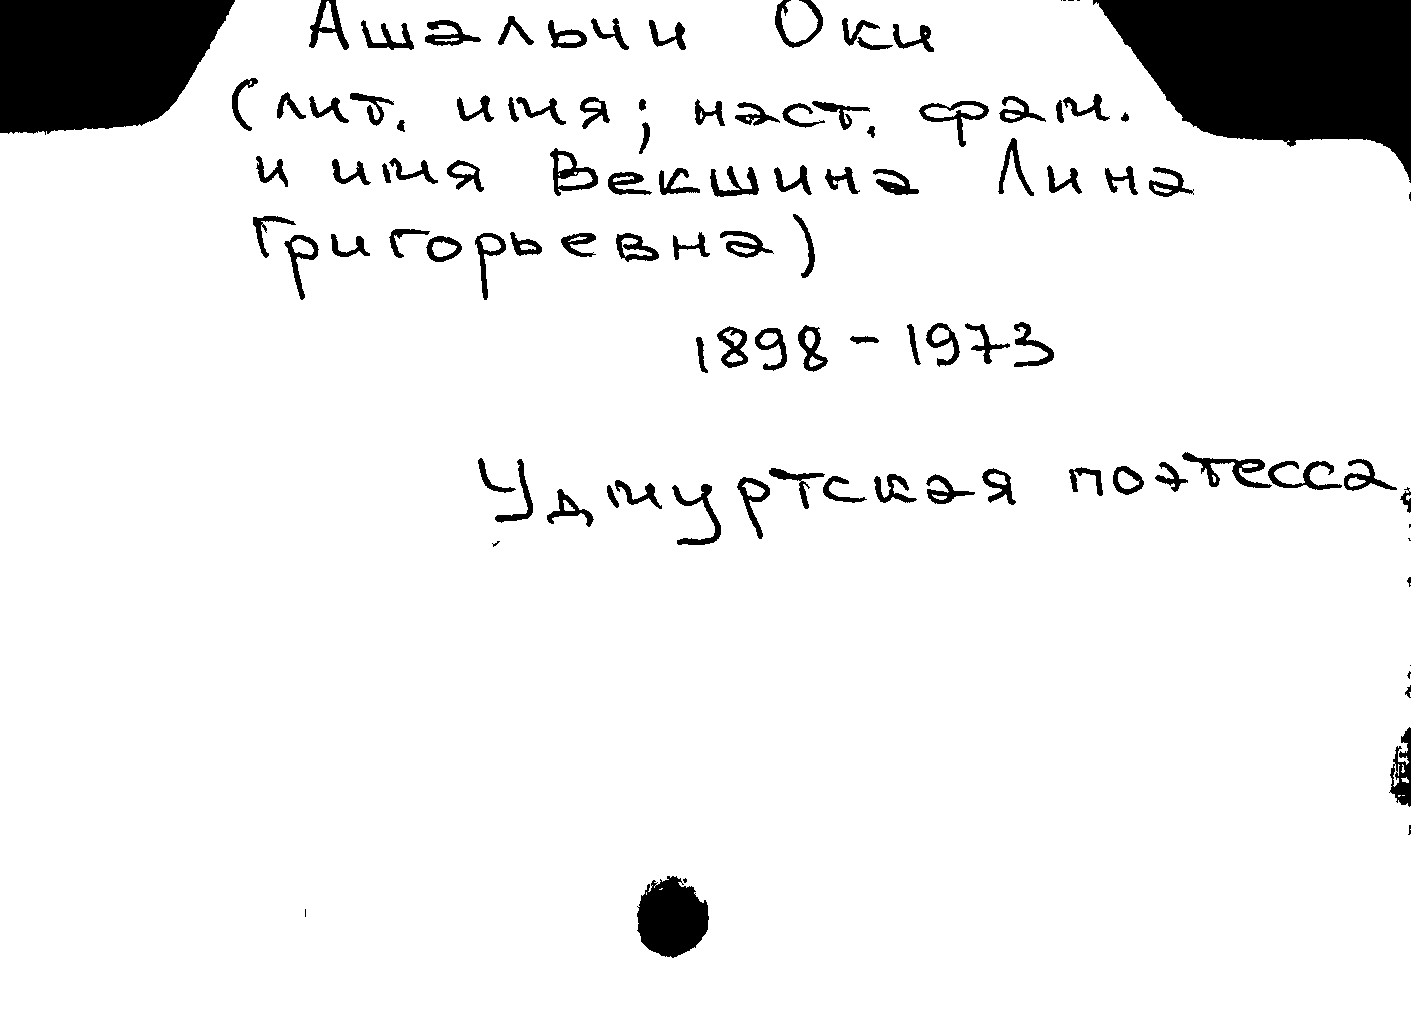 Ашальчи Оки
(лит. имя; наст. фам.
и имя Векшина Лина
Григорьевна)
1898 - 1973
Удмуртская поэтесса